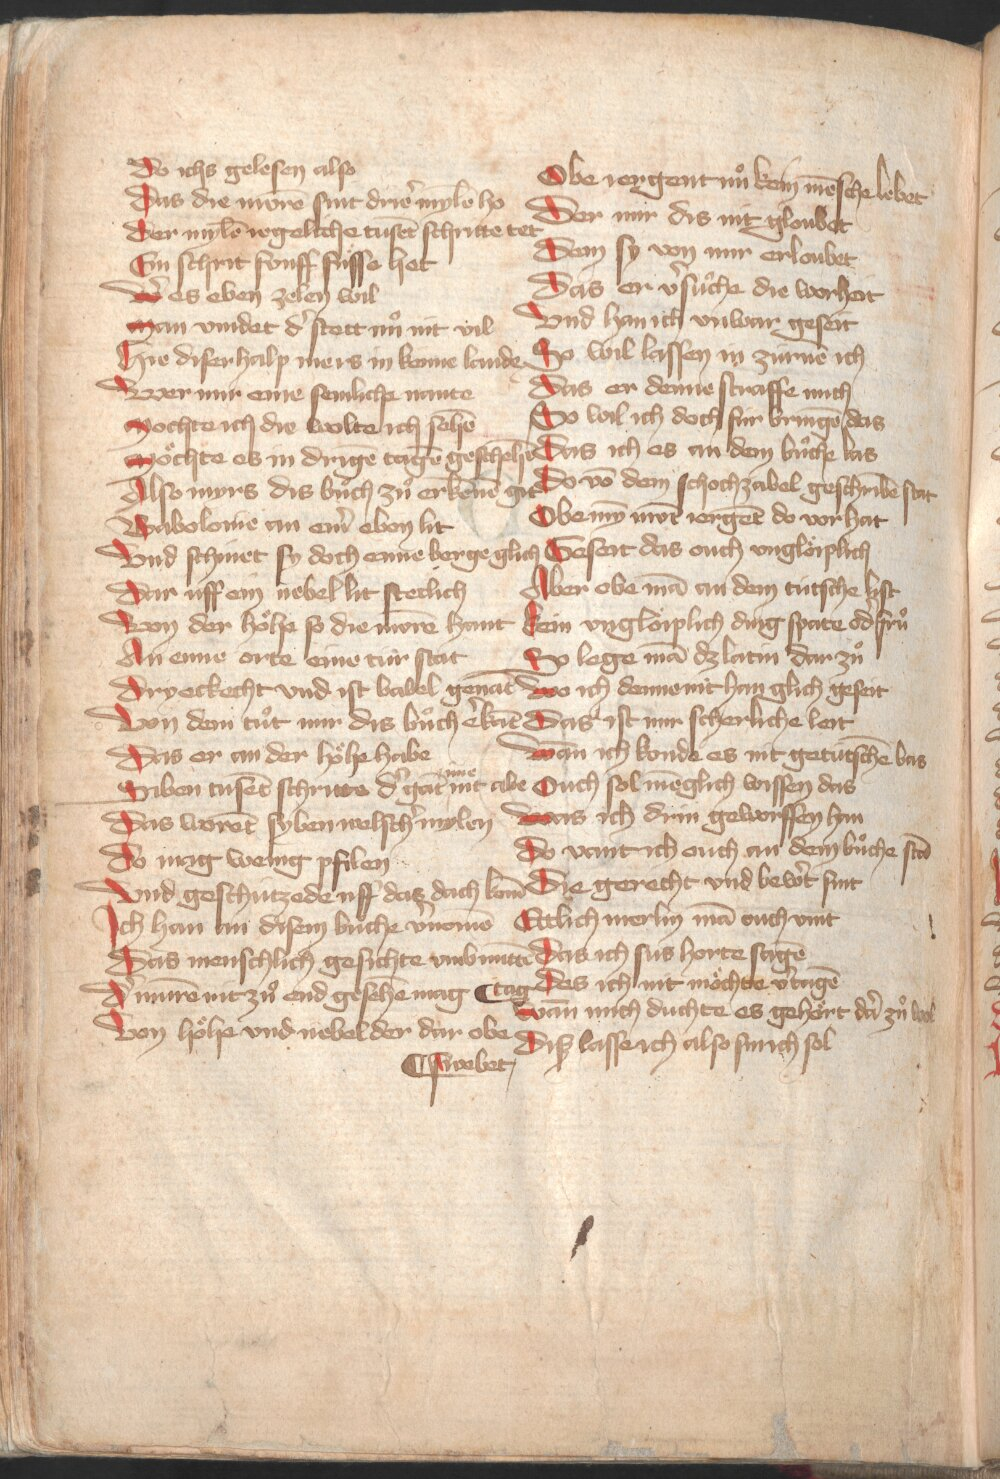 Do ichs gelesen also
Das die more̅ sint drier myle̅ ho
Der myle̅ iegeliche tuse̅t schritte tet
Ein schrit fonff fu̍sse het
Wer es eben zelen wil
Man vindet dˀ stett nuͦ nit vil
Hie diserhalp mers in keine lande
Wer mir eine semliche nante
Mochte ich die wolte ich sehe̅
Moͤchte es in drige tage̅ geschehe̅
Also myrs dis buͦch zuͦ erkene̅ git
Babolonie an eim̅ eben lit
Vnd schinet sy doch eime berge glich
Dar uff ein nebel lit stetlich
Von der hoͤhe so die mure̅ hant
An eime orte eine tu̍r stat
Dryeckecht vnd ist babel gena̅t
Von dem tuͦt mir dis buͦch eˀka̅t
Das er an der hoͤhe habe
Siben tuse̅t schritte dˀ gat nit abe
ime
Das wore̅t syben welsch mylen
Do mag wenig pfilen
Vnd geschutzede uff das dach kome̅
Ich han an disem buche vˀnome̅
Das menschlich gesichte vmb mitte̅
Dˀ mure nit zuͦ end gesehe̅ mag ⸿ tag
Von hoͤhe vnd nebel der dar obe
⸿ swebet
Obe iergent nuͦ kein me̅sche lebet
Der mir dis nit gloubet
Dem sy von mir erloubet
Das er vˀsuͦche die worheit
Vnd han ich vnwar geseit
So wil lassen in zu̍rne̅ ich
Das er denne straffe mich
So wil ich doch fu̍r bringe̅ das
Das ich es an dem buͦche las
Do vo̅ dem schochzabel geschribe̅ stat
Obe my̅ mu̅t ierge̅t do vor hat
Geseit das ouch vngloͤiplich
Aber obe ma̅ an dem tu̍tsche list
Kein vngloͤiplich ding spate odˀ fruͦ
So lege ma̅ dz latin dar zuͦ
Wo ich denne nit han glich geseit
Das ist mir scherliche leit
Wan ich konde es nit getu̍tsche̅ bas
Ouch sol me̅glich wissen das
Was ich drin geworffen han
Do vant ich ouch an dem buͦche sta̅
Die gerecht vnd bewˀt sint
Ettlich merlin ma̅ ouch vint
Das ich sus horte sage̅
Des ich nit moͤchte vˀtage̅
Wan mich duchte es gehoͤrt dar zuͦ wol
Dis lasse ich also sin ich sol